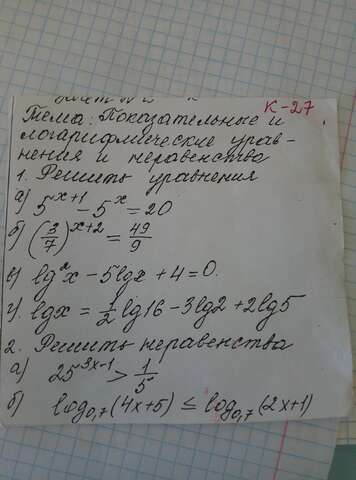 К-27
Тема: Показательные и
логарифмические урав-
нения и неравенства
1. Решить уравнения
а) 5^{x+1} - 5^x = 20
б) (3/7)^{x+2} = 49/9
в) lg²x - 5lgx + 4 = 0.
г) lgx = 1/2 lg16 - 3lg2 + 2lg5
2. Решить неравенства
а) 25^{3x-1} > 1/5
б) log_{0,7}(4x+5) ≤ log_{0,7}(2x+1)